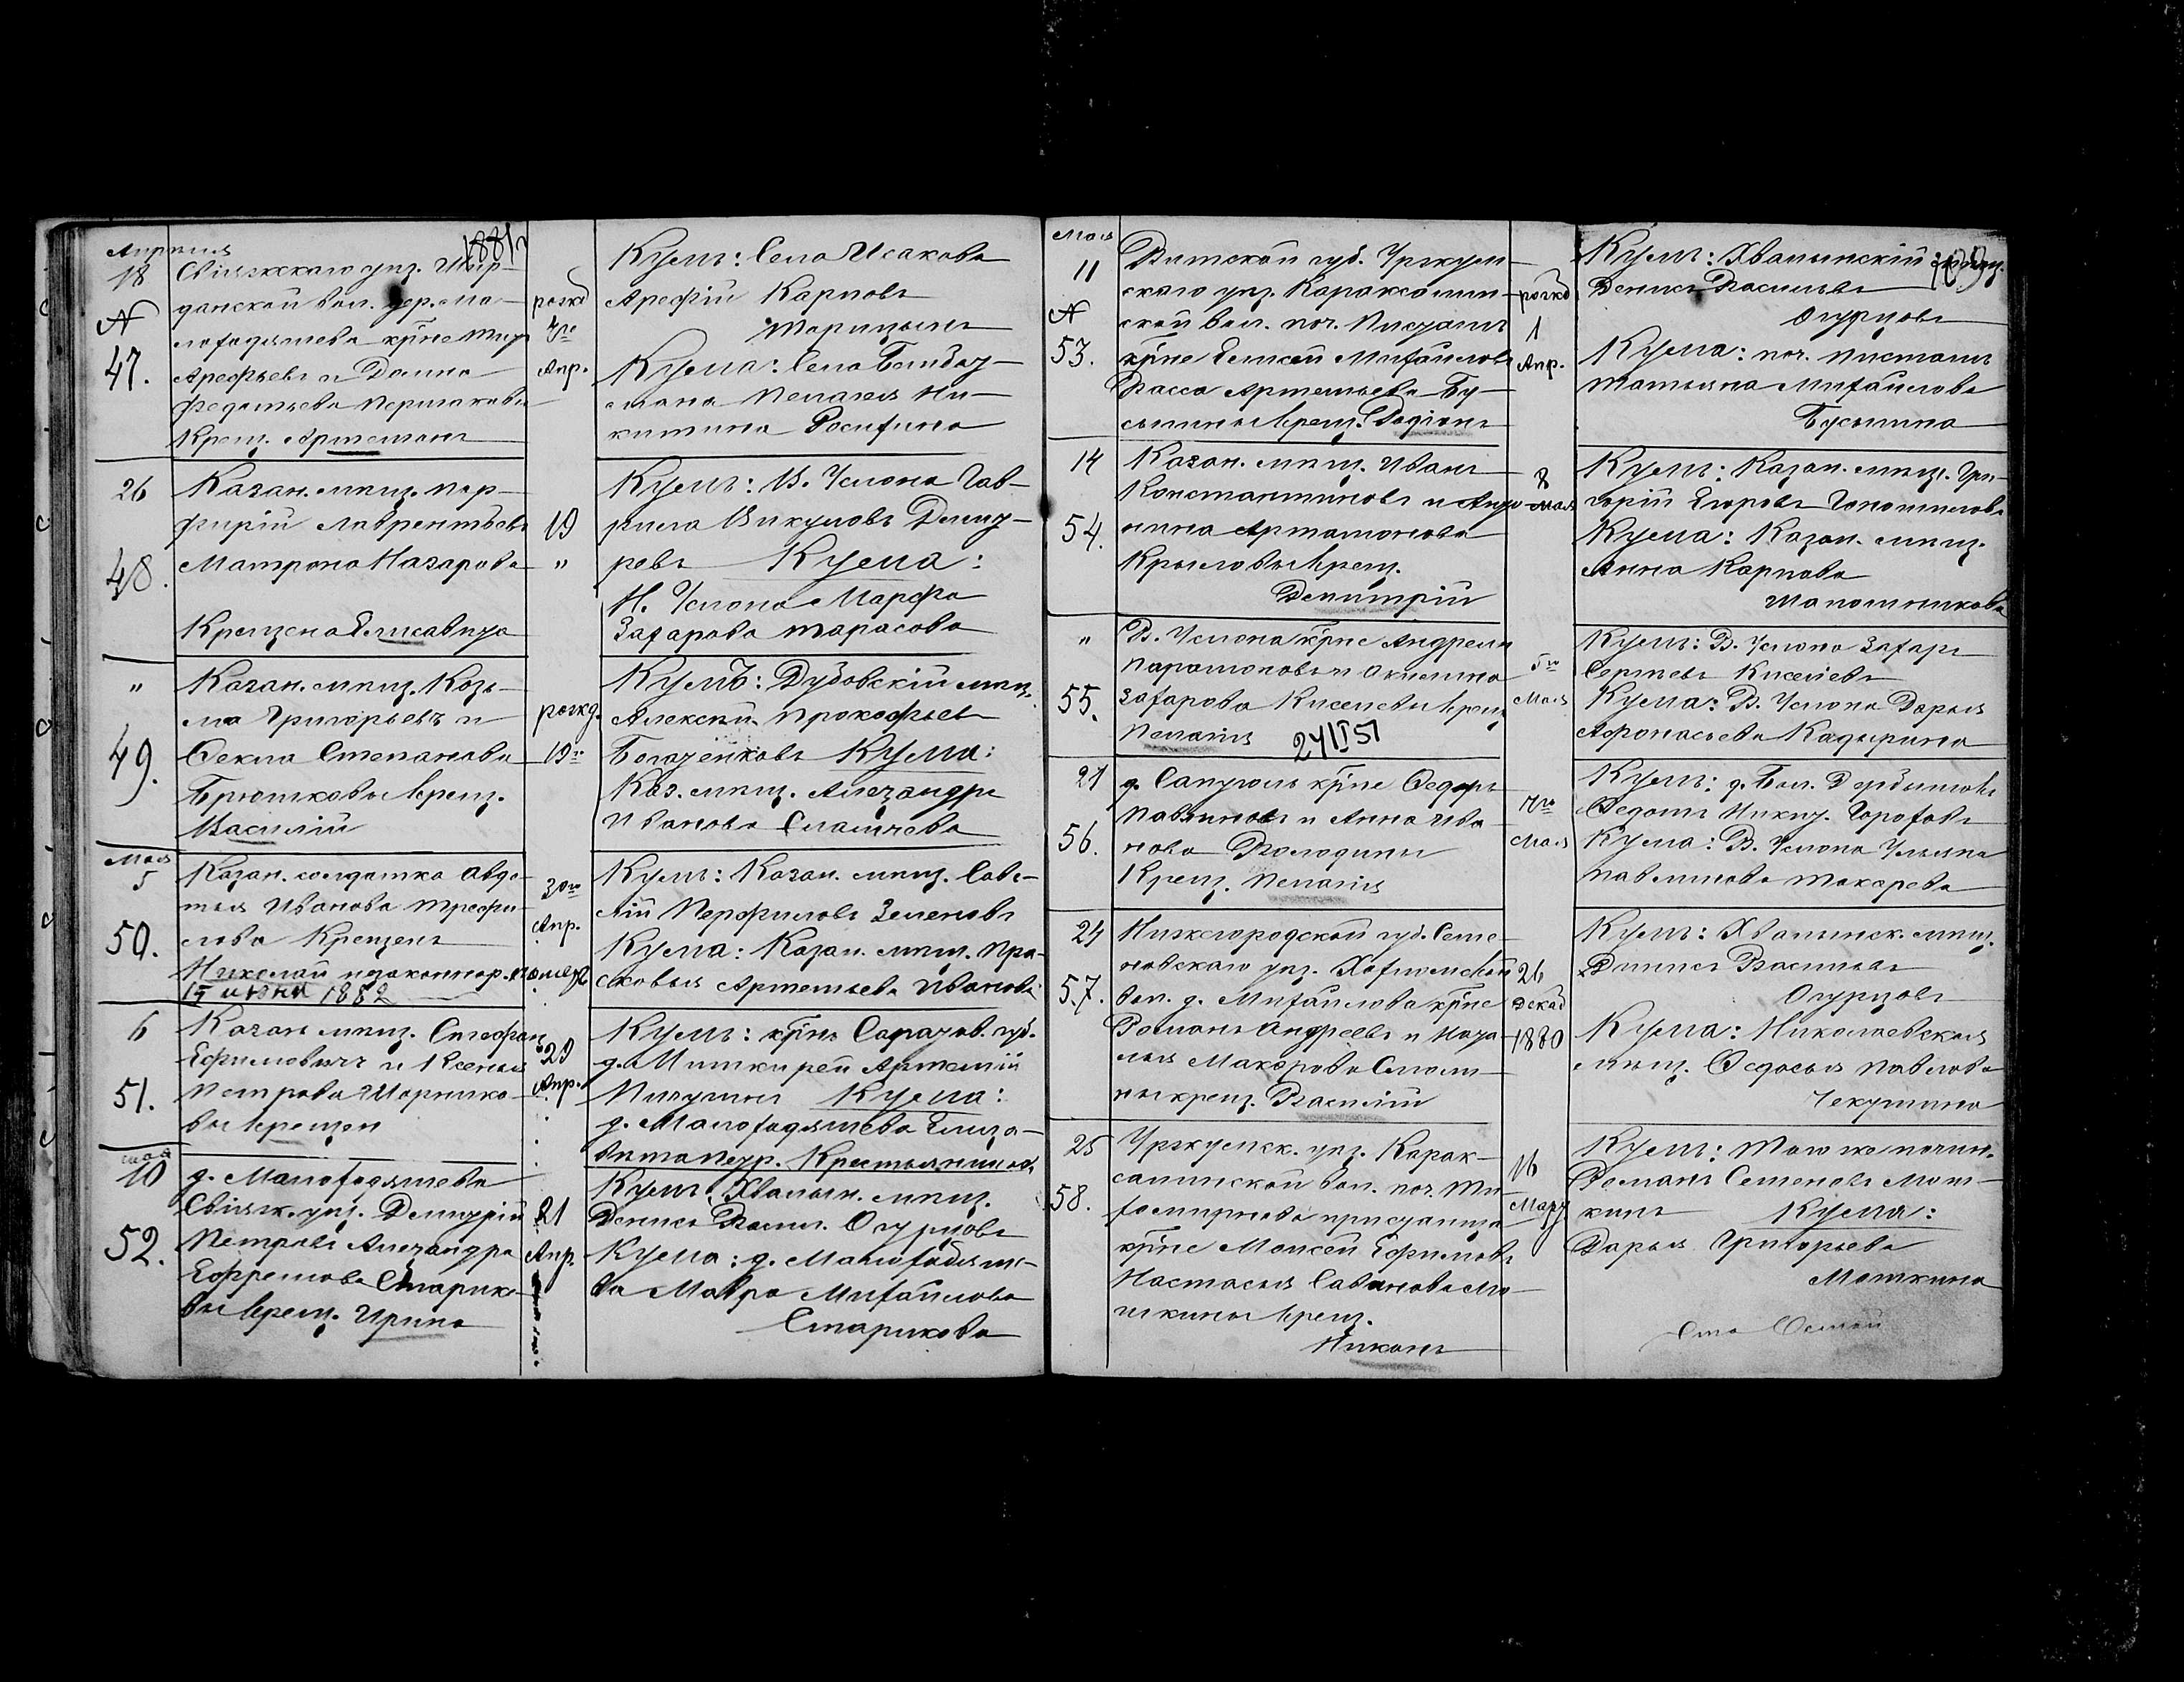 Апреля 1881 г
18
№
47.
Свіяжскаго уѣз. Шир-
данской вол. дер. Ма-
лоходяшева кр̃не
Арефьевъ и Домна
Федотьева Пермяковы
Крещ. Артемонъ
рожд
7го
Апр.
Кумъ: Села Исакова
Арефій Карповъ
Марицынъ
Кума: Села
Пелагея Ни-
китина
26
48.
Казан. мѣщ. Пор-
фирій Лаврентьевъ
Матрона Назарова
Крещена Елисавета
19
"
Кумъ: В. Услона Гав-
рила Викуловъ
ровъ Кума:
Н. Услона Марфа
Захарова Тарасова
"
49.
Казан. мѣщ. Козь-
ма Григорьевъ и
Ѳекла Степанова
Брюшковы Крещ.
Василій
рожд.
19го
Кумъ: Дубовскій мѣщ.
Алексѣй Прокофьев
Кума:
Каз. мѣщ. Александра
Иванова
Мая
5
50.
Казан. солдатка Авдо-
тья Иванова Трефи-
лова Крещенъ
Николай незаконнор. помер
15 июня 1882
30го
Апр.
Кумъ: Казан. мѣщ. Саве-
лій Перфиловъ Зеленовъ
Кума: Казан. мѣщ. Пра-
сковья Артемьева Иванова
6
51.
Казан мѣщ. Стефанъ
Ефимовичъ и Ксенья
Петрова
вы Крещен
29
Апр.
Кумъ: кр̃нъ Саратов. губ.
д. Артемій
Пичугинъ Кума:
д. Малоходяшева Елиза-
вѣта Петр. Крестьянинова
мая
10
52.
д. Малоходяшева
Свіяж. уѣз. Дмитрій
Петровъ Александра
Ефремова Старико-
вы Крещ. Ирина
21
Апр.
Кумъ: Хвалын. мѣщ.
Денисъ Васил. Огурцовъ
Кума: д. Малоходяше-
ва Мавра Михайлова
Старикова
Мая
11
№
53.
Вятской губ. Уржум-
скаго уѣз.
ской вол. поч.
кр̃не Елисей Михайловъ
Васса Артемьева Бу-
сыгины Крещ. Родіонъ
рожд
1
Апр.
Кумъ: Хвалынскій мѣщ.
Денисъ Васильевъ
Огурцовъ
Кума: поч.
Татьяна Михайлова
Бусыгина
14
54.
Казан. мѣщ. Иванъ
Константиновъ и Анто-
нина Артамонова
Крыловы Крещ.
Димитрій
8
Мая
Кумъ: Казан. мѣщ. Гри-
горій Егоровъ
Кума: Казан. мѣщ.
Анна Карпова
Шапошникова
"
55.
В. Услона кр̃не Андреянъ
Парамоновъ и Акилина
Захарова Киселевы Крещ
Пелагія 24/II 51
5го
Мая
Кумъ: В. Услона Захаръ
Сергѣевъ Киселевъ
Кума: В. Услона Дарья
Афонасьева Кадырина
21
56.
д. Сапуголь кр̃не Ѳедоръ
Павлиновъ и Анна Ива-
нова Володины
Крещ. Пелагія
7го
Мая
Кумъ: д. Бол. Дербышевъ
Ѳедотъ Никит. Гороховъ
Кума: В. Услона Ульяна
Павлинова Токарева
24
57.
Нижегородской губ. Семе-
новскаго уѣз. Хохломской
вол. д. Михайлова кр̃не
Романъ Андреевъ и Ната-
лья Макарова
ны крещ. Василій
26
декаб
1880
Кумъ: Хвалынск. мѣщ.
Денисъ Васильевъ
Огурцовъ
Кума: Николаевская
мѣщ. Ѳедосья Павлова
Чекушина
25
58.
Уржумск. уѣз.
вол. поч.
кр̃не Моисей Ефимовъ
Настасья Саванова Мо-
шкины Крещ.
Никонъ
16
Март
Кумъ: Того же почин.
Романъ Семеновъ Мош-
кинъ Кума:
Дарья Григорьева
Мошкина